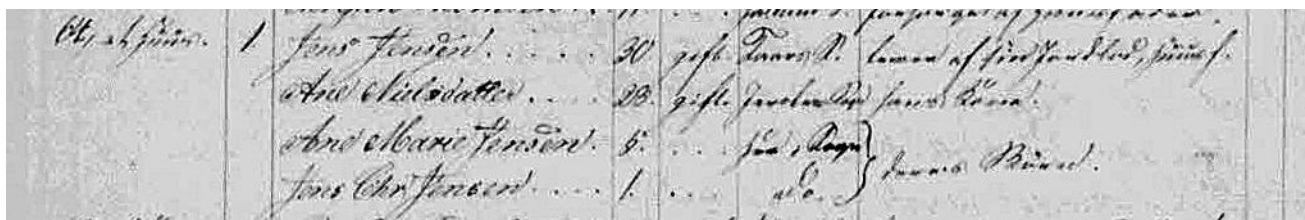 Et, et Huus. 1. Jens Jensen . . . . . 30 gift Taars S. lever af sin Jordlod, Huusf.
Ane Nielsdatter . . . 28. gift. hans Kone.
Ane Marie Jensen. 5. . . . her i Sogn } deres Børn.
Jens Chr Jensen . . . . 1. . . . do.